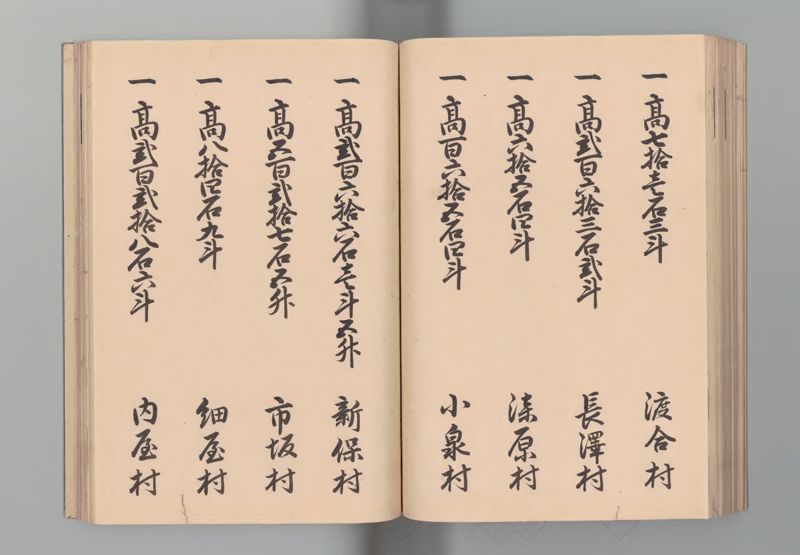 一 高七拾壱石三斗 渡合村
一 高弐百六拾三石弐斗 長澤村
一 高六拾五石四斗 漆原村
一 高百六拾五石四斗 小泉村
一 高弐百六拾六石壱斗五升 新保村
一 高五百弐拾七石五升 市坂村
一 高八拾四石九斗 細屋村
一 高弐百弐拾八石六斗 内屋村